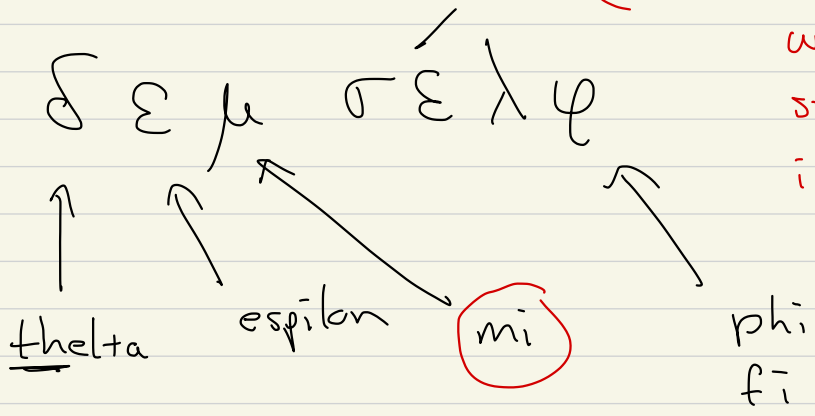 δεμ σέλφ
thelta espilon mi phi
fi